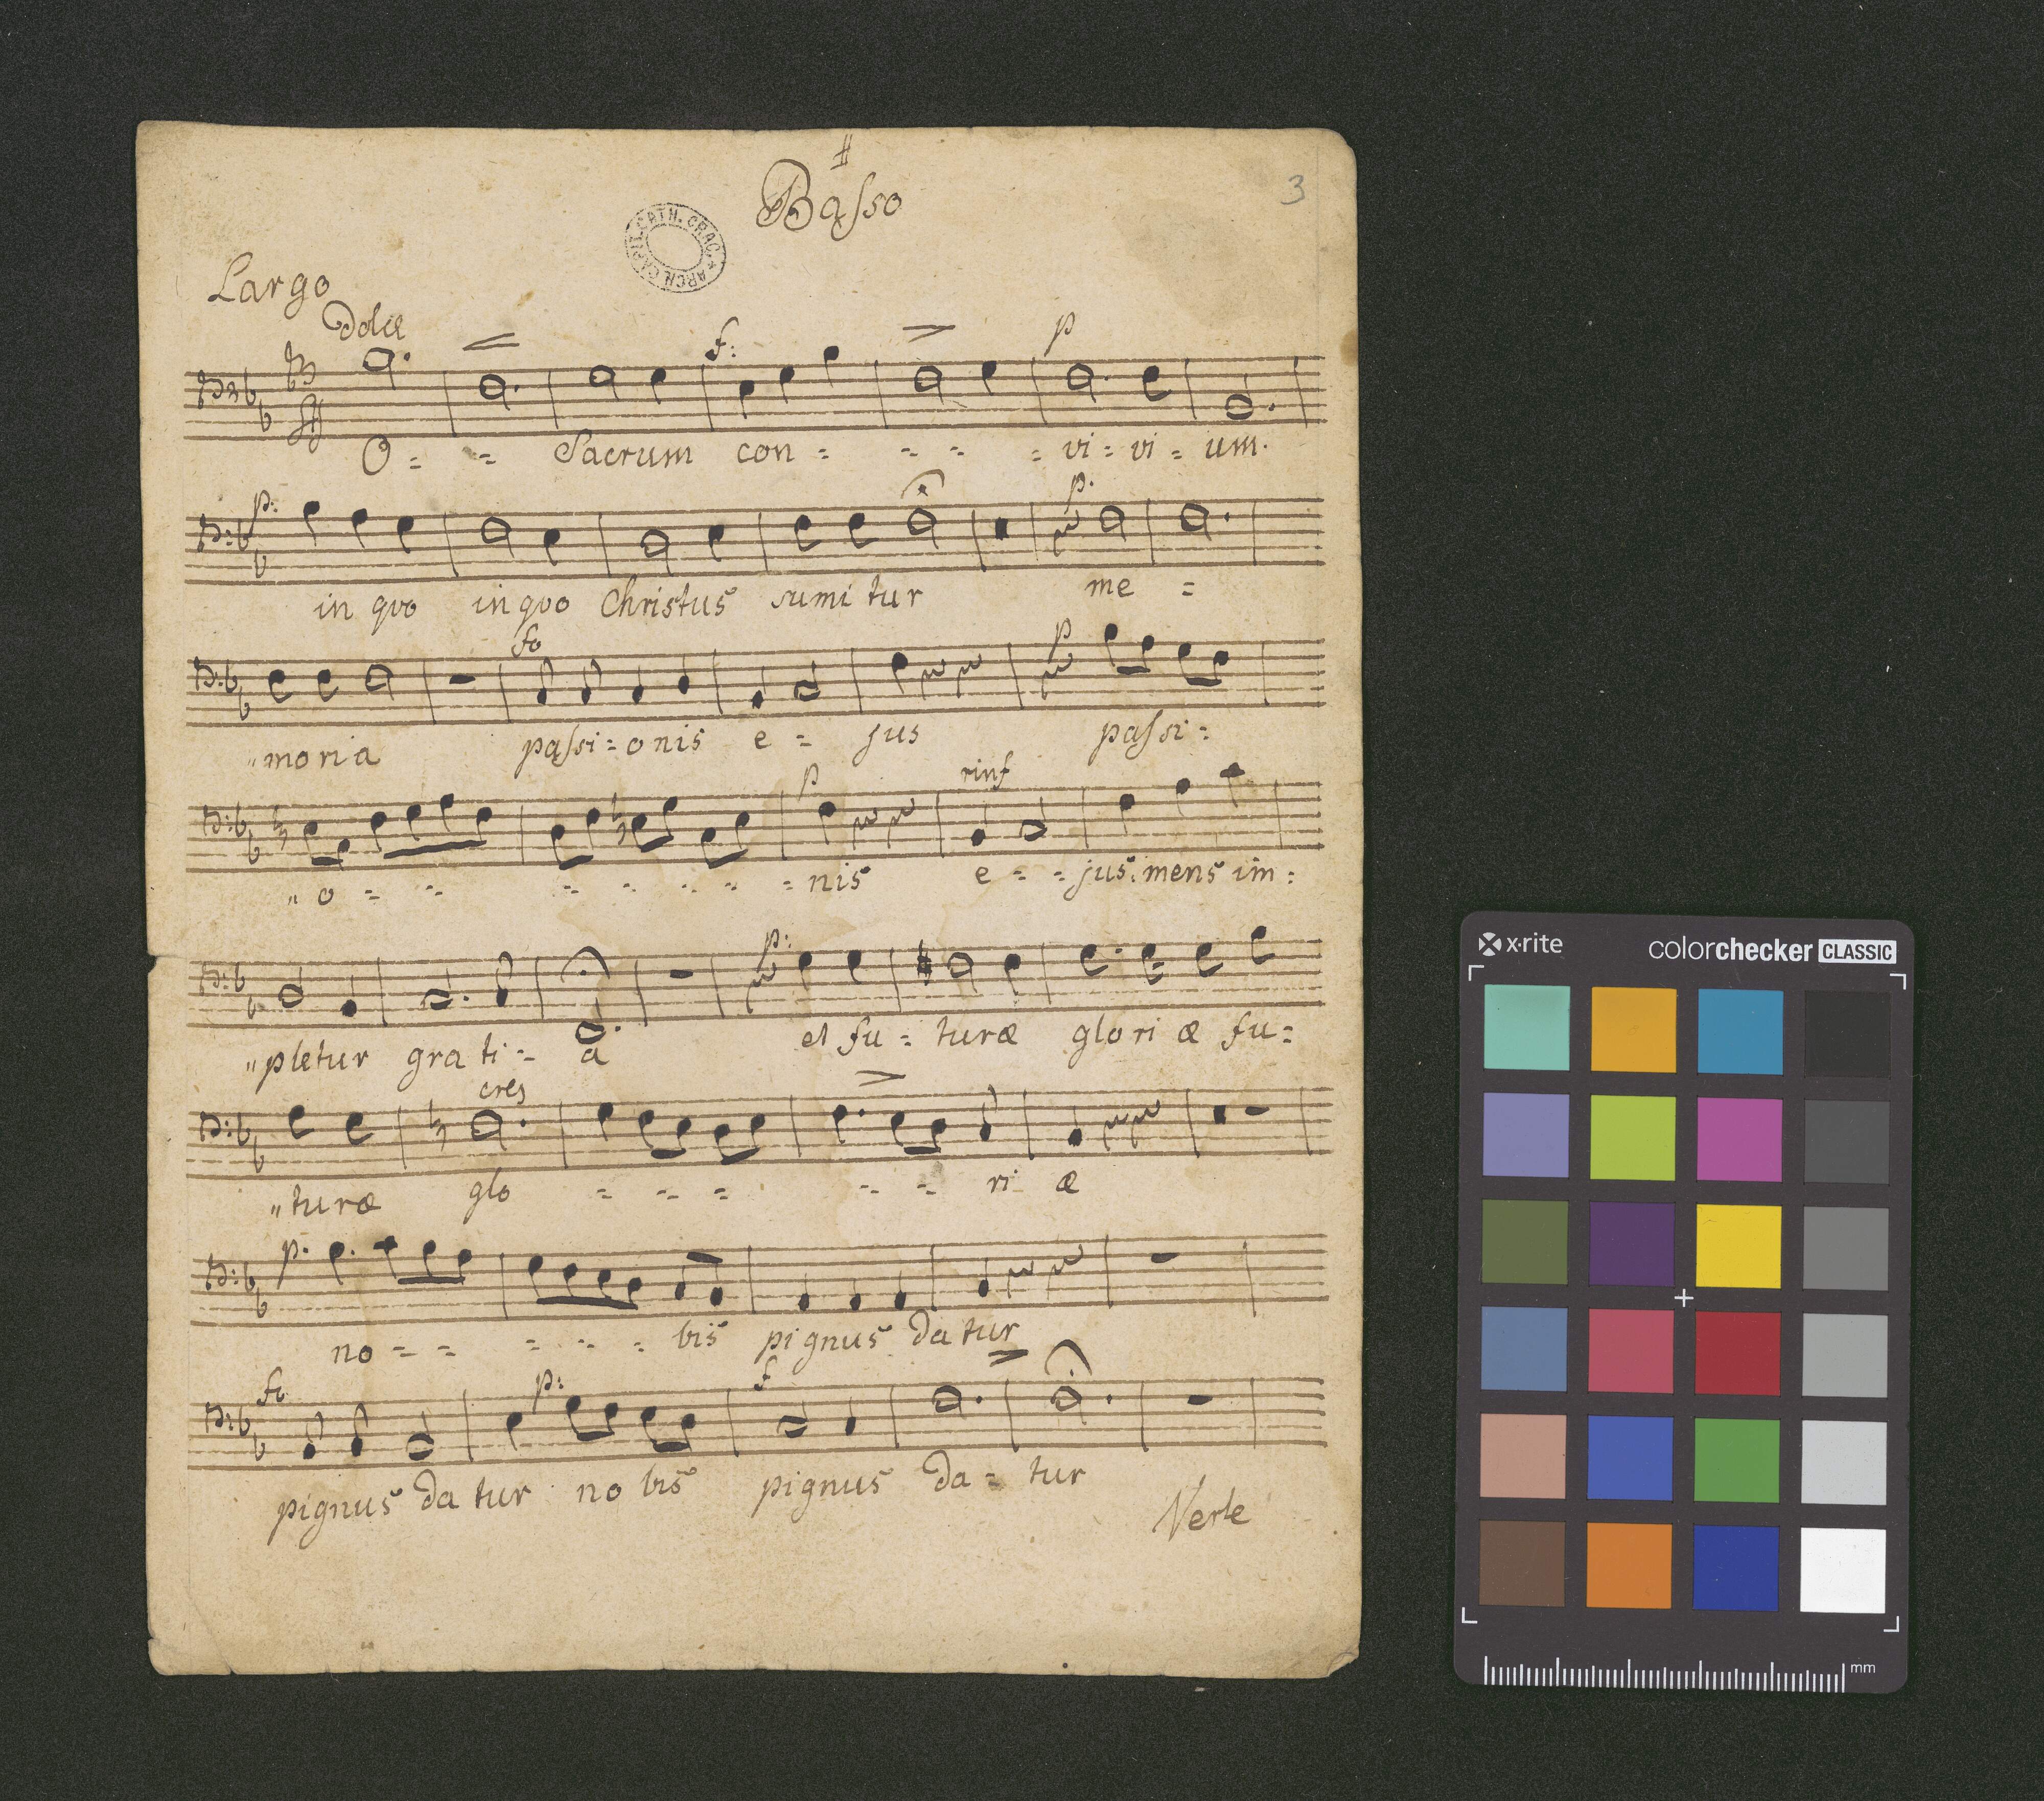 Basso
3
ARCH. CAPIT. CATH. CRAC.
Largo
Dolce
f: p
O = = Sacrum con = = = = vi = vi = um.
p: p.
in quo in quo Christus sumi tur me =
fo p
"moria passi = onis e = jus passi =
p rinf
"o = = = = = = = nis e = = jus. mens im =
p:
"pletur gra ti = a et fu = turæ glo ri æ fu =
cres
"turæ glo = = = = = ri æ
p.
no = = = = = bis pignus Da tur
fo p: f
pignus Da tur no bis pignus Da = tur
Verte
x·rite colorchecker CLASSIC
mm